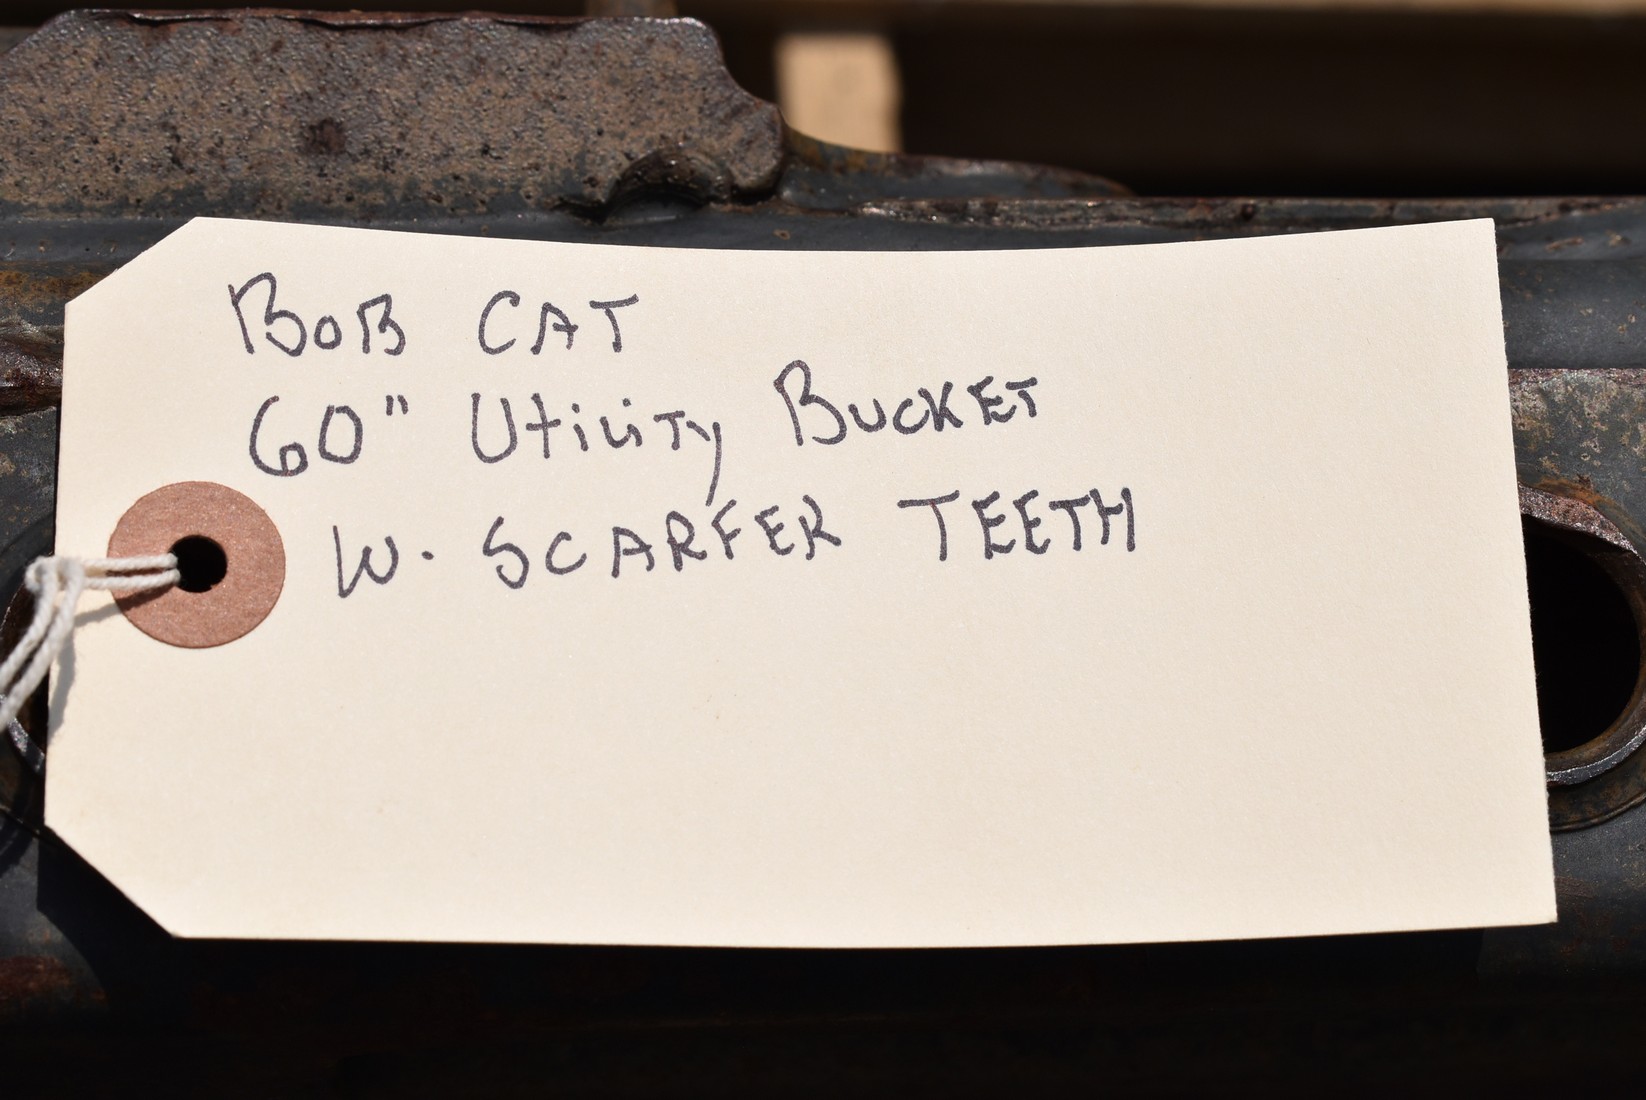 BoB CAT
60" Utility BUCKET
W. SCARFER TEETH